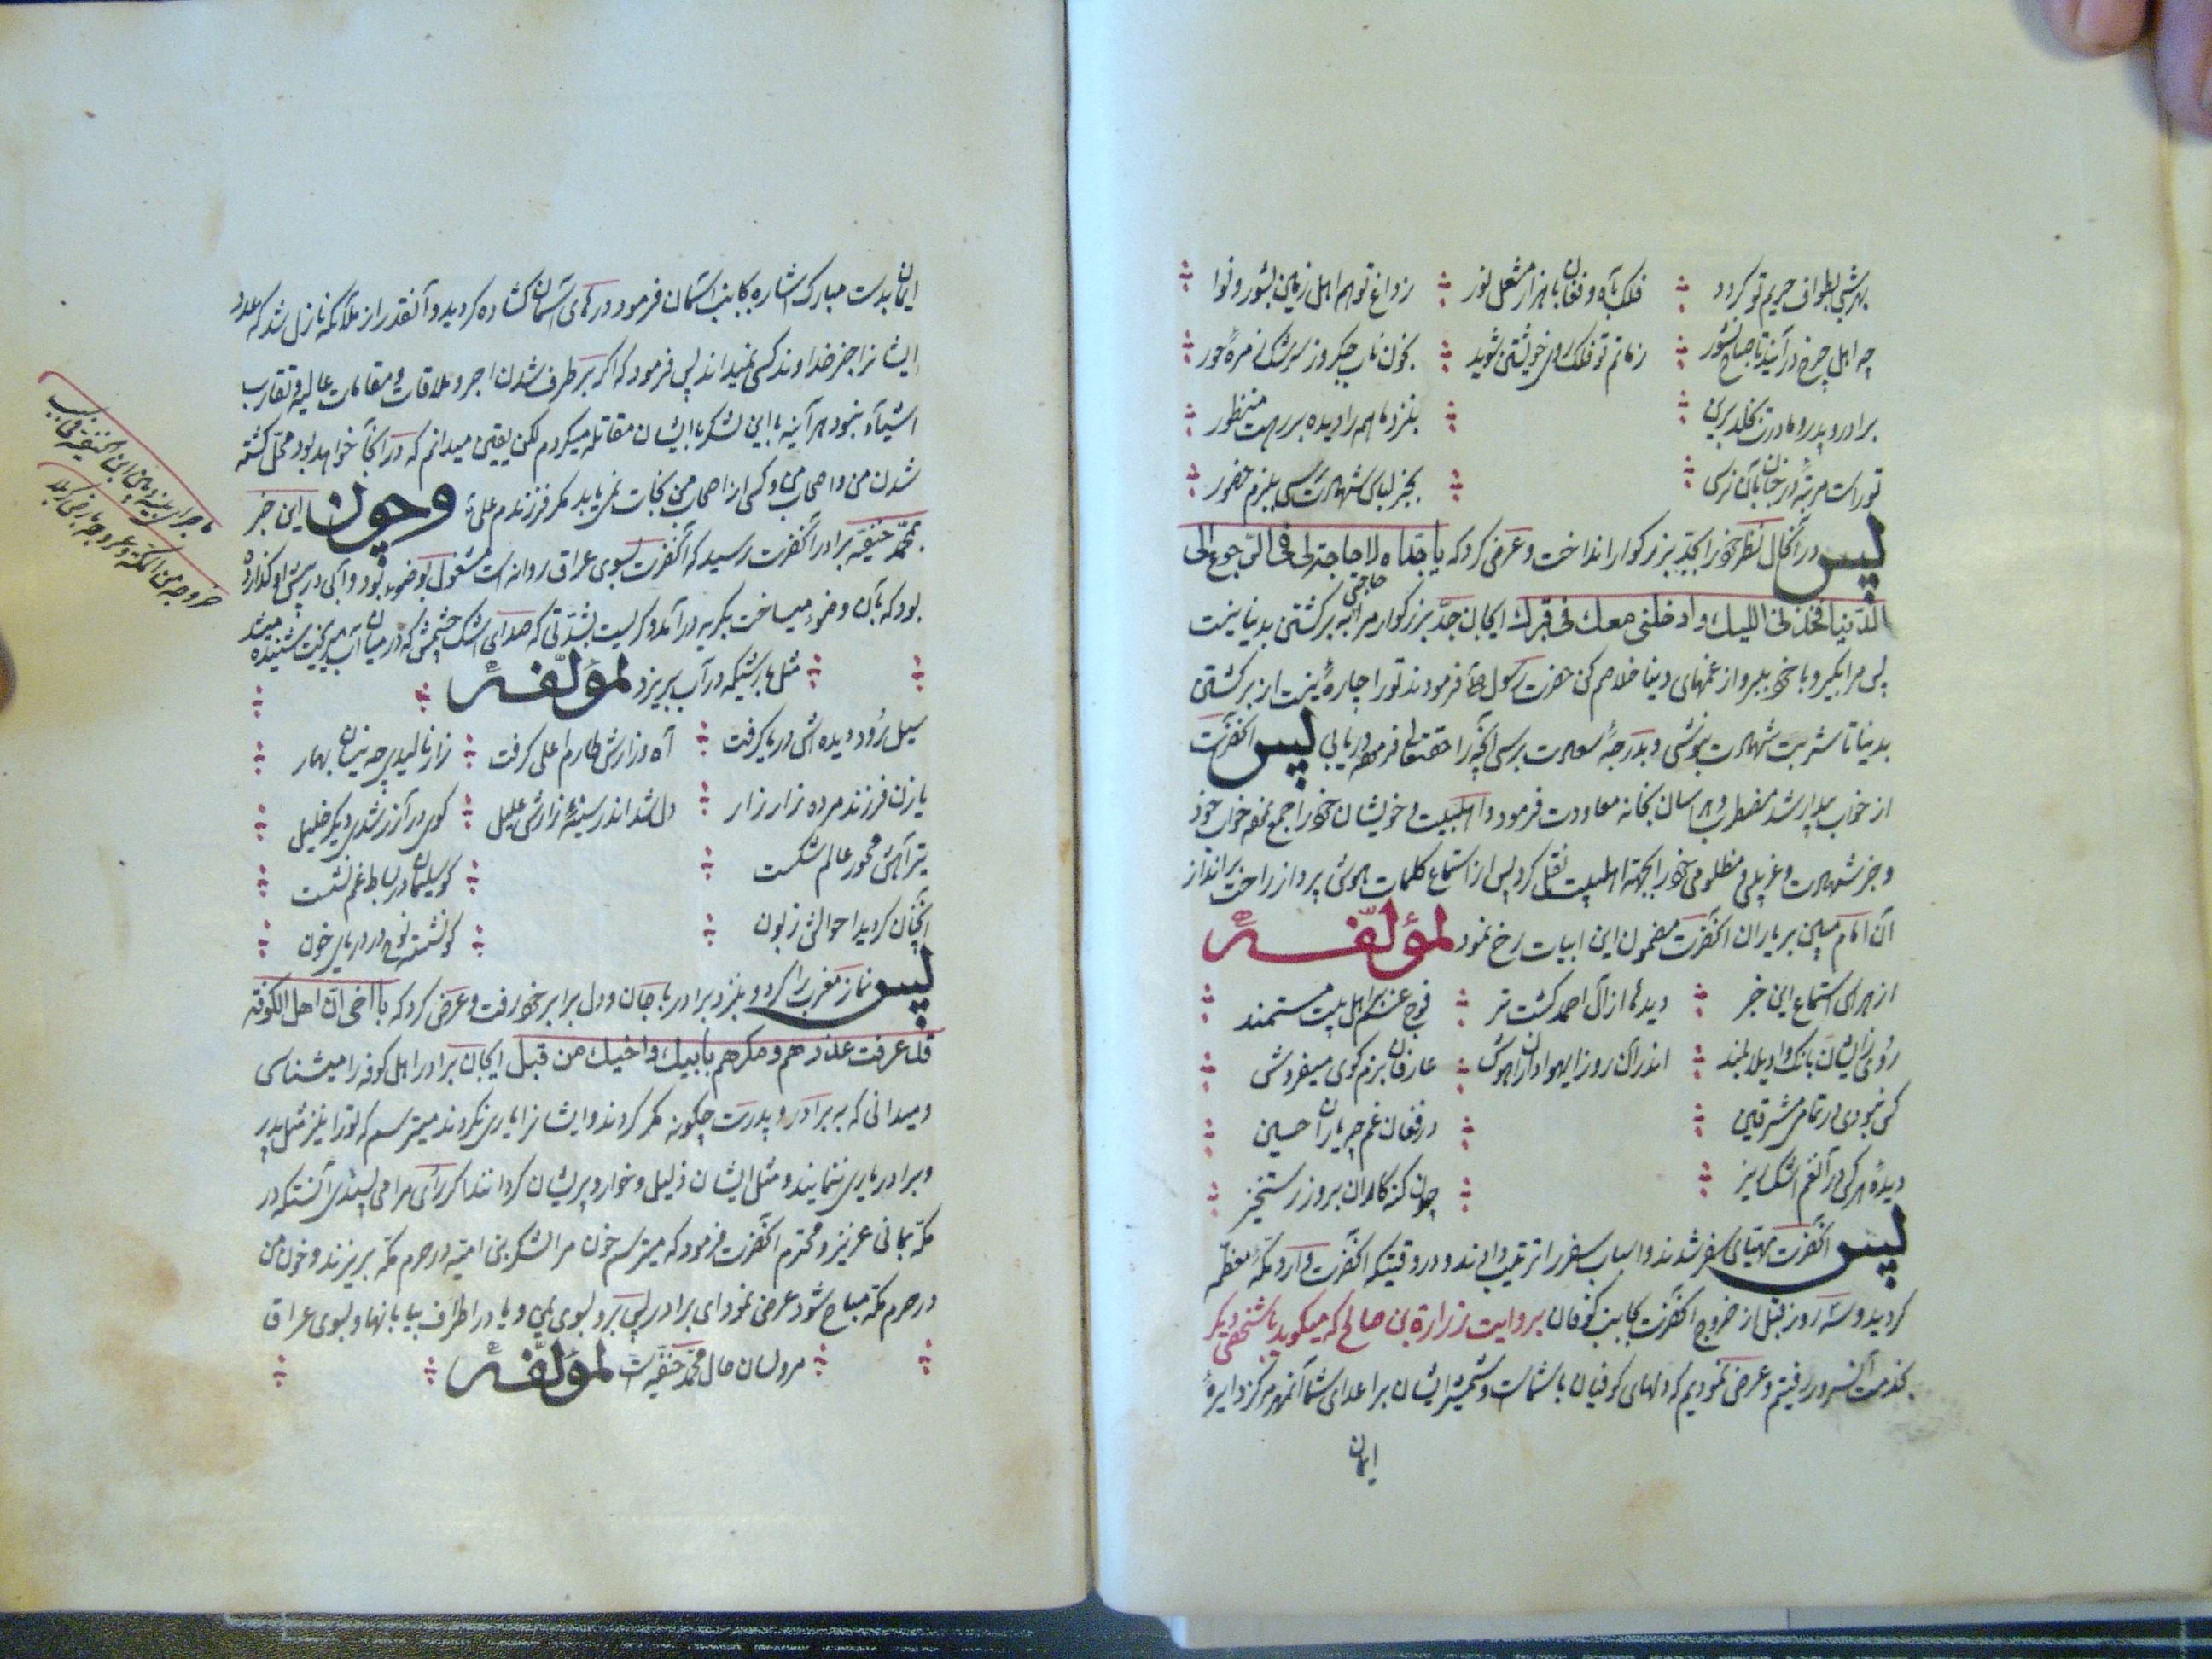 بهر شبی بطواف حریم تو گردد فلک بآه و فغان با هزار مشعل نور ز داغ تو همه اهل زمین بشور و نوا
چه اهل چرخ در آیند تا صباح نشور ز ماتم تو فلک روی خویشتن شوید بخون ناب جگر وز سرشک نمرهٔ حور
برادر و پدر و مادرت بخلد برین بنزد ما همه را دیده بر رهت منتظور
تو راست مرتبهٔ در جنان بآن نرسی بجز لباس شهادت رسی ببزم حضور
پس در آنحال نظر خود را بجد بزرگوار انداخت و عرض کرد که یا جداه لا حاجة لی فی الرجوع الی
الدنیا فخذنی الیک و ادخلنی معک فی قبرک ایجان جد بزرگوار مرا حاجتی به برگشتن بدنیا نیست
پس مرا بگیر و با خود ببر و از غمهای دنیا خلاصم کن حضرت رسول ص فرمودند تو را چارهٔ نیست از برگشتن
بدنیا تا شربت شهادت بنوشی و بدرجهٔ سعادت برسی آنچه را حقتعالی فرموده دریابی پس آنحضرت
از خواب بیدار شد مضطرب و هراسان بخانه معاودت فرمود و اهلبیت و خویشان خود را جمع نموده خواب خود
و خبر شهادت و غریبی و مظلومی خود را بجهة اهلبیت نقل کرد پس از استماع کلمات هوش پرداز راحت برانداز
آن امام مبین بر یاران آنحضرت مضمون این ابیات رخ نمود لمؤلفه
از برای استماع این خبر دیدها از آل احمد گشت تر فوج غم بر اهل بیت مستمند
روی زایشان بانگ واویلا بلند اندر آن روز ایهواداران هوش عارفان بزم کوی میفروش
کی نبودی در تمام مشرقین در فغان غم چه یاران حسین
دیدهٔ هر کس در آنغم اشک ریز چون گنه کاران بروز رستخیز
پس آنحضرت مهیای سفر شدند و اسباب سفر را ترتیب دادند و در وقتیکه آنحضرت وارد مکهٔ معظمه
گردید و سه روز قبل از خروج آنحضرت بجانب کوفان بروایت زرارة بن صالح که میگوید با شخصی دیگر
بخدمت آنسرور رفتیم و عرض نمودیم که دلهای کوفیان با شماست و شمشیر ایشان بر اعدای شما آنمهر مرکز دایرهٔ
ایمان
ایمان بدست مبارک اشاره بجانب آسمان فرمود درهای آسمان گشاده گردید و آنقدر از ملائکه نازل شد که عدد
ایشانرا جز خداوند کسی نمیداند پس فرمود که اگر بر طرف شدن اجر و ملاقات و مقامات عالیه و تقارب
اشیآء نبود هر آینه با این لشکر با ایشان مقاتله میکردم لکن یقین میدانم که در آنجا خواهد بود محل کشته
شدن من و اصحاب من و کسی از اصحاب من نجات نمی یابد مگر فرزندم علی و چون این خبر
بمحمد حنفیه برادر آنحضرت رسید که آنحضرت بسوی عراق روانه است مشغول بوضوء بود و آبی در پیش او گذارده
بود که بآن وضوء میساخت بگریه در آمد و گریست بشدتی که صدای اشک چشمش که در میان آب میریخت شنیده میشد
مثل بارشیکه در آب بریزد لمؤلفه
سیل رود دیده اش دریا گرفت آه و زارش طارم اعلی گرفت زار نالیدی چه نیسان بهار
یا زن فرزند مرده زار زار دل شد اندر سینهٔ زارش علیل گوی در آذر شدی دیگر خلیل
تیر آهش محور عالم شکست گو سلیمان در بساط غم نشست
آنچنان گردید احوالش زبون گو نشسته نوح در دریای خون
پس نماز مغرب را کرد و بنزد برادر با جان و دل برابر خود رفت و عرض کرد که یا اخی ان اهل الکوفة
قد عرفت غدرهم و مکرهم بابیک و اخیک من قبل ایجان برادر اهل کوفه را میشناسی
و میدانی که به برادر و پدرت چگونه مکر کردند و ایشانرا یاری نکردند میترسم که تو را نیز مثل پدر
و برادر یاری ننمایند و مثل ایشان ذلیل و خوار و پریشان گردانند اگر رأی مرا می پسندی آنستکه در
مکه بمانی عزیز و محترم آنحضرت فرمود که میترسم خون مرا لشکر بنی امیه در حرم مکه بریزند و خون من
در حرم مکه مباح شود عرض نمود ای برادر پس برو بسوی یمن و یا در اطراف بیابانها و بسوی عراق
مرو لسان حال محمد حنفیه است لمؤلفه